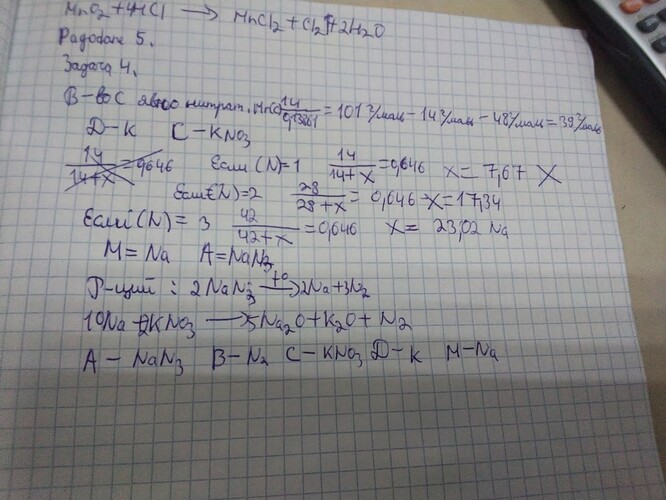 MnO2 + 4HCl → MnCl2 + Cl2↑ + 2H2O
5.
Задача 4.
В-во C явно нитрат. M(C) 14/0,13861 = 101 г/моль - 14 г/моль - 48 г/моль = 39 г/моль
D-K C-KNO3
14/14+x = 0,646 Если (N)=1 14/14+x = 0,646 x = 7,67 X
Если(N)=2 28/28+x = 0,646 x = 17,34
Если (N) = 3 42/42+x = 0,646 x = 23,02 Na
M = Na A = NaN3
Р-ций : 2NaN3 →t° 2Na+3N2
10Na + 2KNO3 → 5Na2O + K2O + N2
A - NaN3 B-N2 C - KNO3 D-K M-Na